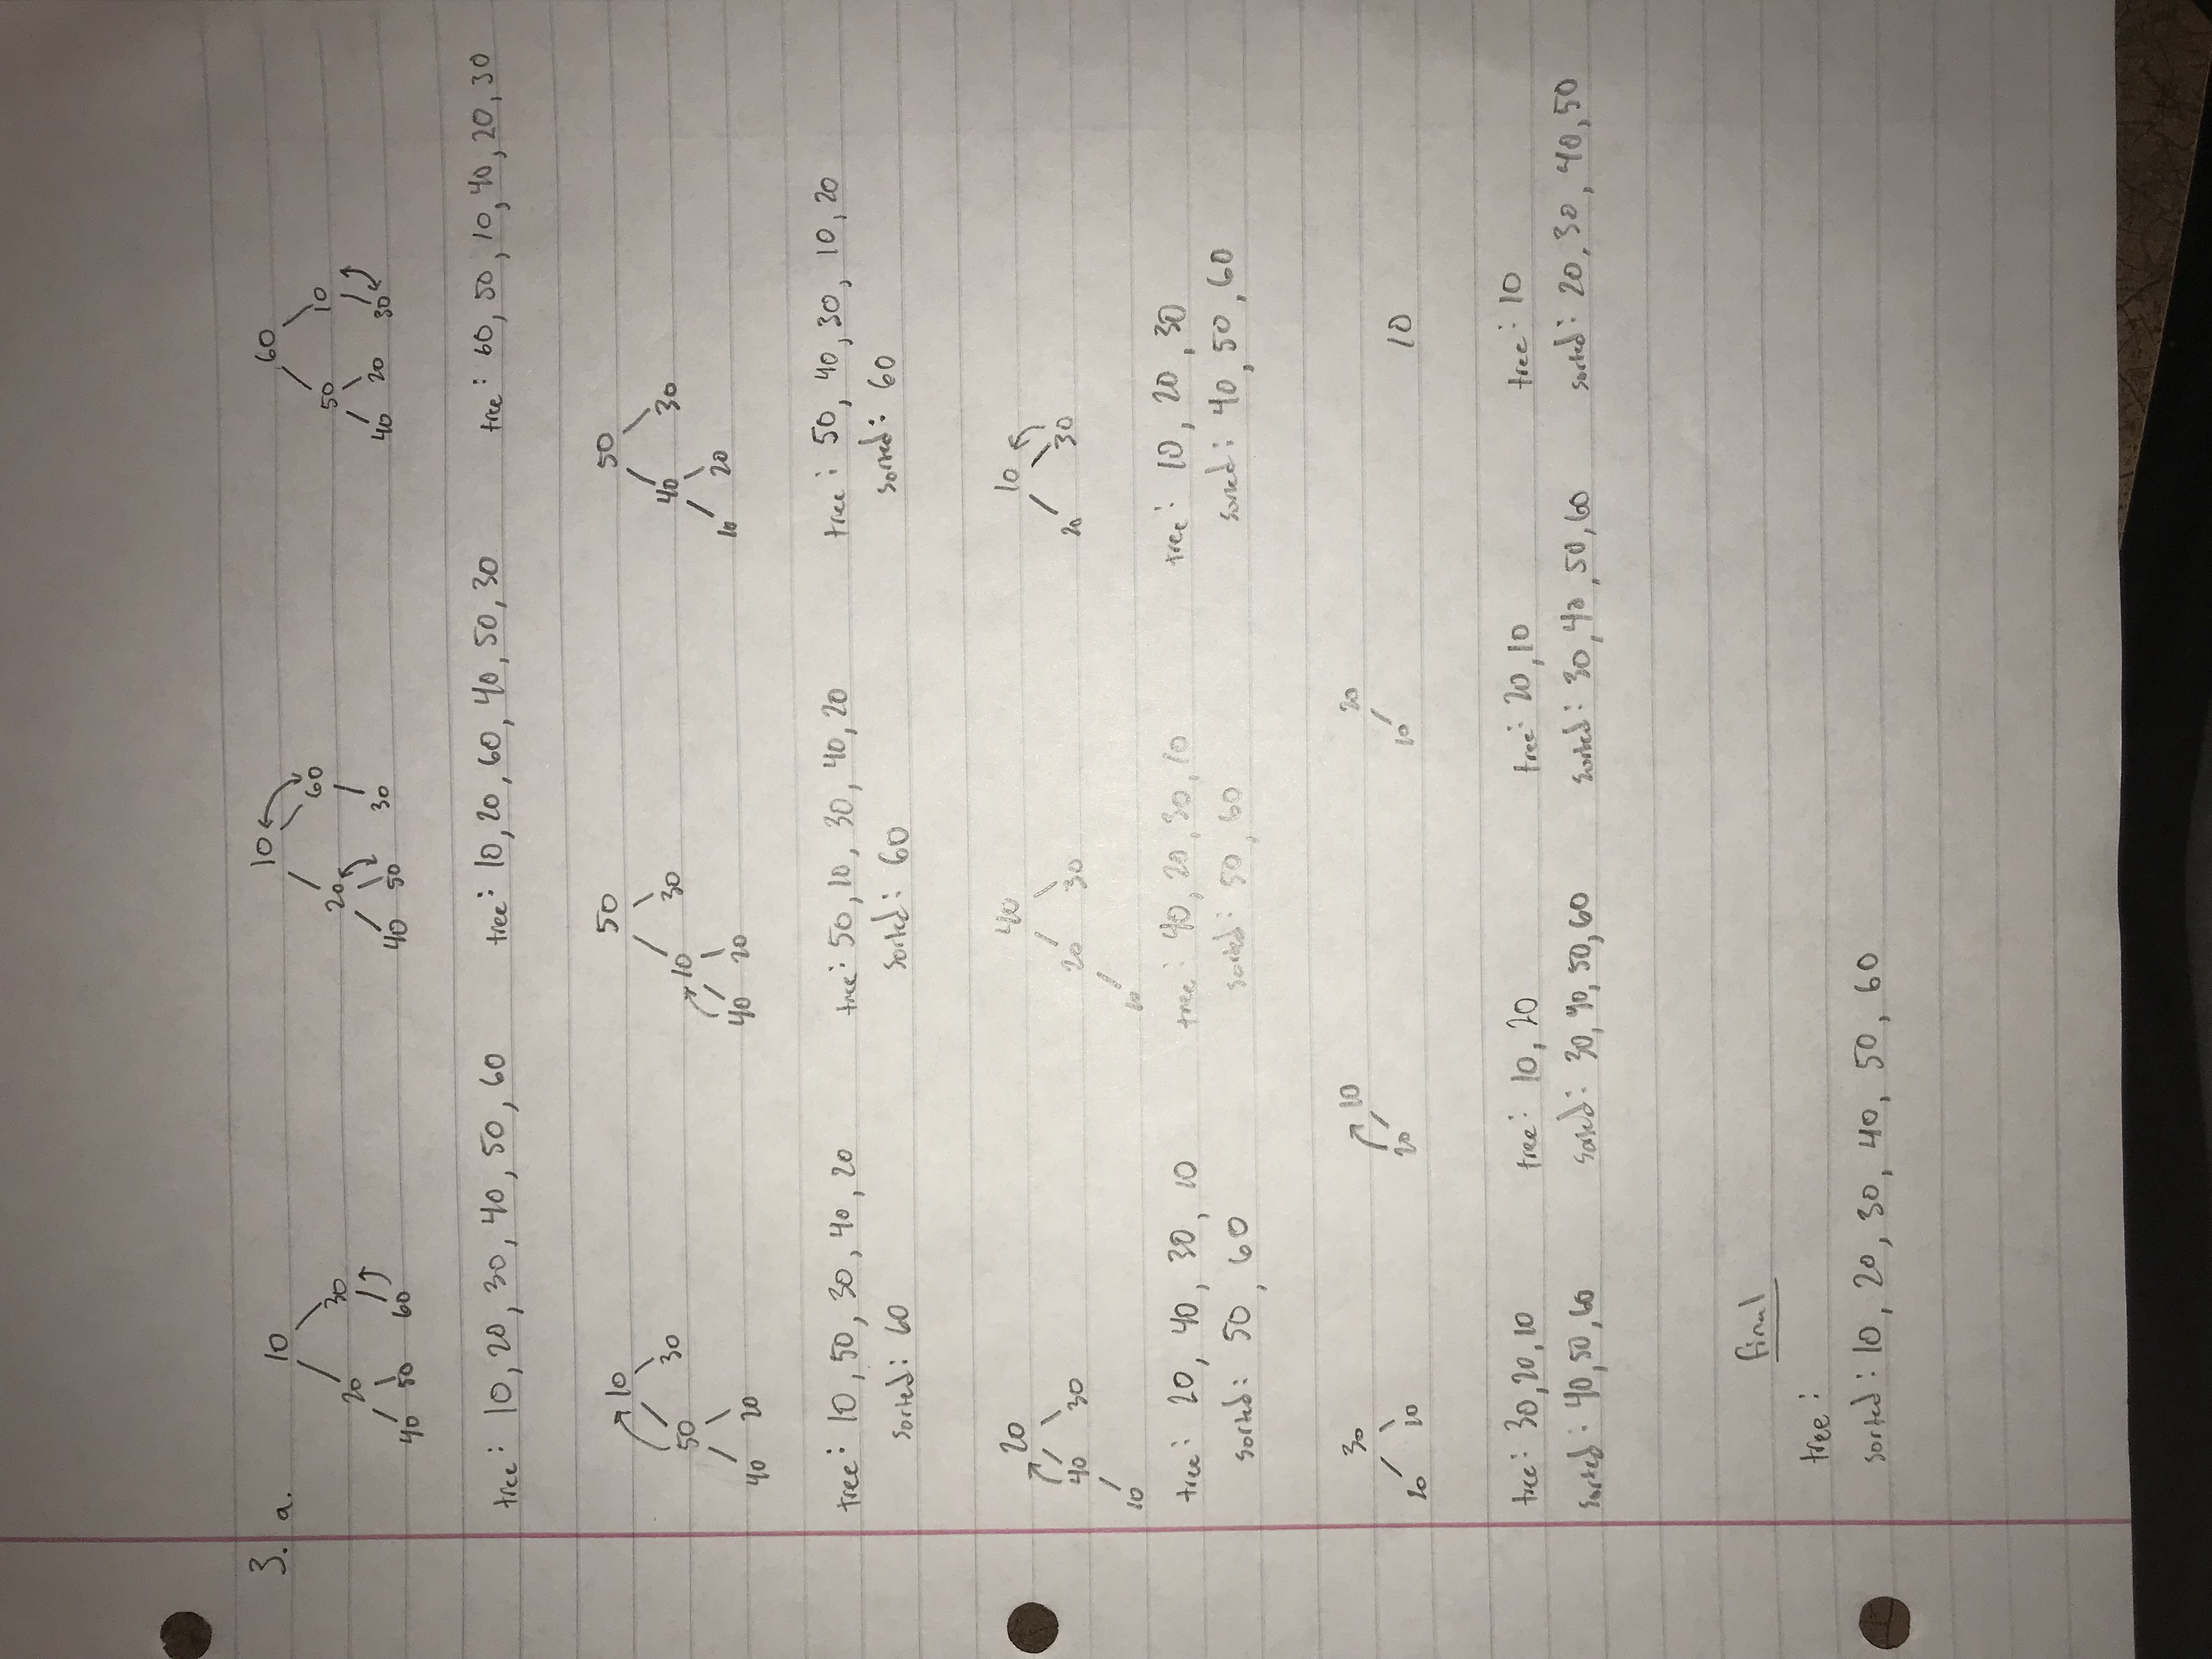 3. a.
10
20 30
40 50 60
tree: 10, 20, 30, 40, 50, 60
10
20 60
40 50 30
tree: 10, 20, 60, 40, 50, 30
60
50 10
40 20 30
tree: 60, 50, 10, 40, 20, 30
10
50 30
40 20
tree: 10, 50, 30, 40, 20
sorted: 60
50
10 30
40 20
tree: 50, 10, 30, 40, 20
sorted: 60
50
40 30
10 20
tree: 50, 40, 30, 10, 20
sorted: 60
20
40 30
10
tree: 20, 40, 30, 10
sorted: 50, 60
40
20 30
10
tree: 40, 20, 30, 10
sorted: 50, 60
10
20 30
tree: 10, 20, 30
sorted: 40, 50, 60
30
20 10
tree: 30, 20, 10
sorted: 40, 50, 60
10
20
tree: 10, 20
sorted: 30, 40, 50, 60
20
10
tree: 20, 10
sorted: 30, 40, 50, 60
10
tree: 10
sorted: 20, 30, 40, 50
final
tree:
sorted: 10, 20, 30, 40, 50, 60